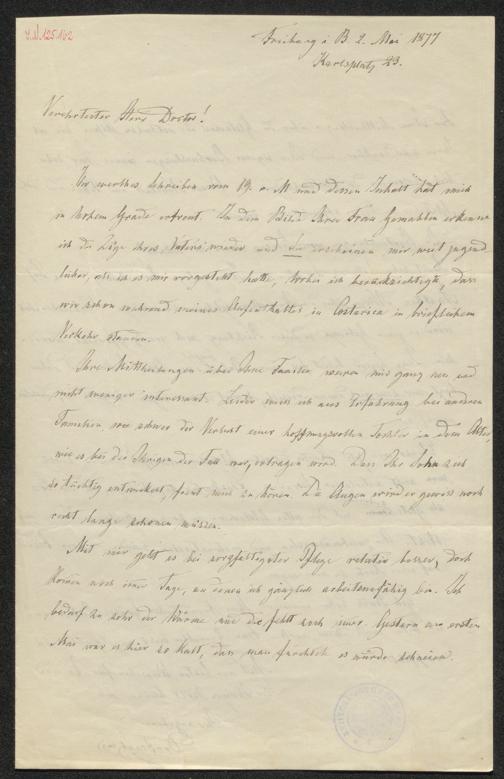 I.N. 125.162
Freiburg i B 2. Mai 1877
Karlsplatz 23.
Verehrtester Herr Doctor!
Ihr werthes Schreiben vom 19. v. M und dessen Inhalt hat mich
in hohem Grade erfreut. In dem Bilde Ihrer Frau Gemahlin erkenne
ich die Züge ihres Vaters wieder und Sie erscheinen mir weit jugend
licher, als ich es mir vorgestellt hatte, wobei ich berücksichtigte, dass
wir schon während meines Aufenthaltes in Costarica in brieflichem
Verkehr standen.
Ihre Mittheilungen über Ihre Familie waren mir ganz neu und
nicht weniger interessant. Leider weiss ich aus Erfahrung bei anderen
Familien wie schwer der Verlust einer hoffnungsvollen Tochter in dem Alter,
wie es bei der Ihrigen der Fall war, ertragen wird. Dass Ihr Sohn sich
so tüchtig entwickelt, freut mich zu hören. Die Augen wird er gewiss noch
recht lange schonen müssen.
Mit mir geht es bei sorgfältigster Pflege relativ besser, doch
kommen noch immer Tage, an denen ich gänzlich arbeitsunfähig bin. Ich
bedarf zu sehr der Wärme und die fehlt noch immer. Gestern am ersten
Mai war es hier so kalt, dass man fürchtete es würde schneien.